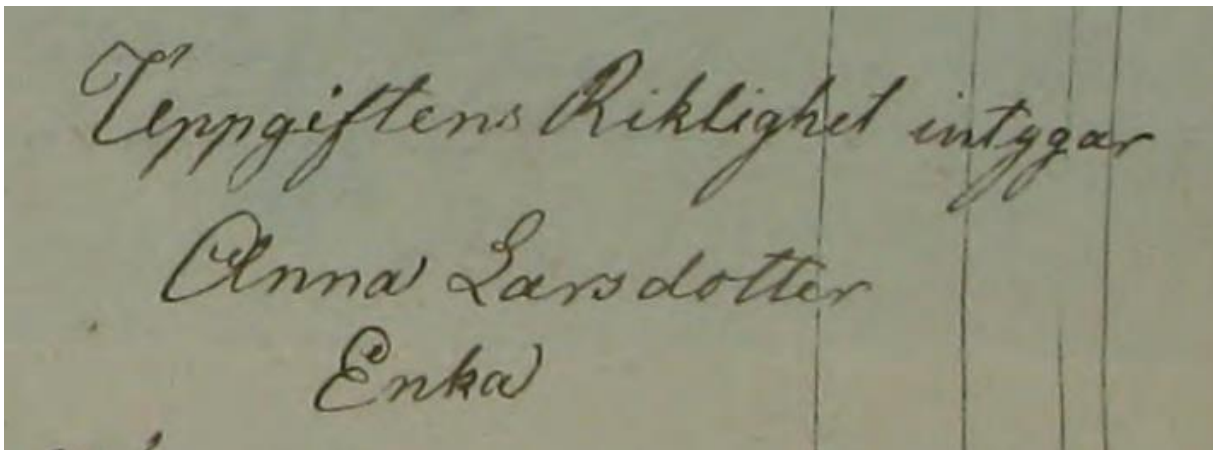 Uppgiftens Riklighet intygar
Anna Larsdotter
Enka